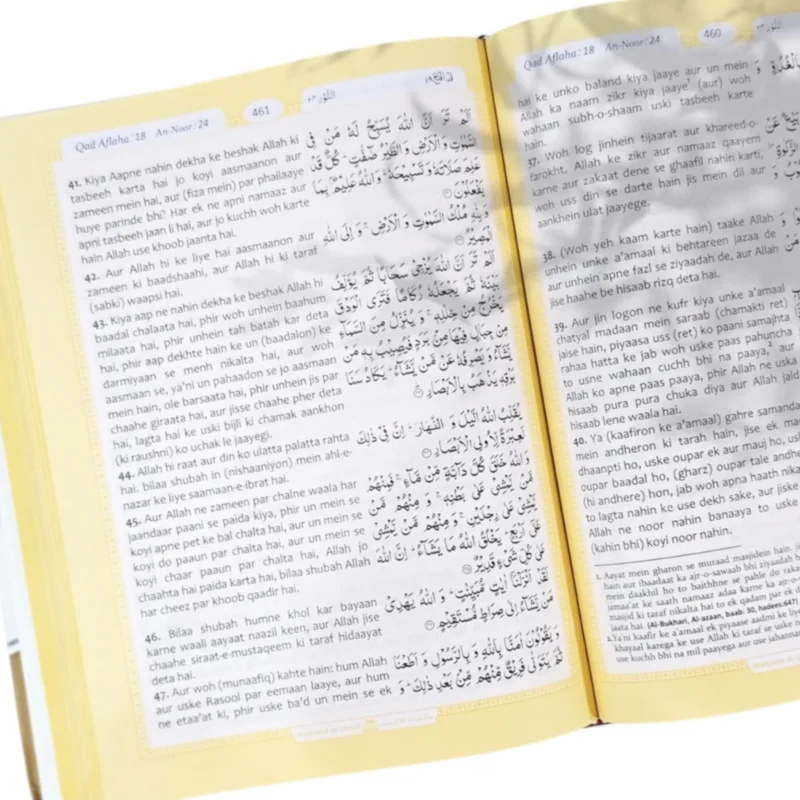 Qad Aflaha: 18 An-Noor: 24
460
النُّوْر ٢٤
hai ke unko baland kiya jaaye aur un mein
Allah ka naam zikr kiya jaaye¹ (aur) woh
wahaan subh-o-shaam uski tasbeeh karte
hain.
37. Woh log jinhein tijaarat aur khareed-o-
farokht, Allah ke zikr aur namaaz qaayem
karne aur zakaat dene se ghaafil nahin karti,
woh uss din se darte hain jis mein dil aur
aankhein ulat jaayege.
38. (Woh yeh kaam karte hain) taake Allah
unhein unke a'amaal ki behtareen jazaa de
aur unhein apne fazl se ziyaadah de, aur Allah
jise chaahe be hisaab rizq deta hai.
39. Aur jin logon ne kufr kiya unke a'amaal
chatyal madaan mein saraab (chamakti ret)
jaise hain, piyaasa uss (ret) ko paani samajhta
rahaa hatta ke jab woh uske paas pahuncha
to usne wahaan cuchh bhi na paaya,² aur
Allah ko apne paas paaya, phir Allah ne uska
hisaab pura pura chuka diya aur Allah jald
hisaab lene waala hai.
40. Ya (kaafiron ke a'amaal) gahre samandar
mein andheron ki tarah hain, jise ek mauj
dhaanpti ho, uske oupar ek aur mauj ho, uske
oupar baadal ho, (gharz) oupar tale andhere
(hi andhere) hon, jab woh apna haath nikaale
to lagta nahin ke use dekh sake, aur jiske
Allah ne noor nahin banaaya to uske
(kahin bhi) koyi noor nahin.
1. Aayat mein gharon se muraad masjidein hain,
hain aur ibaadaat ka ajr-o-sawaab bhi ziyaadah
mein daakhil ho to baithhne se pahle do raka
jamaa'at ke saath namaaz adaa karne ka ajr-o-
masjid ki taraf nikalta hai to ek qadam par ek
jaata hai. (Al-Bukhari, Al-azaan, baab: 30, hadees:647)
2. Ya'ni kaafir ke a'amaal ek piyaase aadmi ke
khayaal karega ke use Allah ki taraf se uske
use kuchh bhi na mil paayega aur use jahannam
Qad Aflaha: 18 An-Noor: 24
461
النُّوْر ٢٤
قَدْ اَفْلَحَ ١٨
41. Kiya Aapne nahin dekha ke beshak Allah ki
tasbeeh karta hai jo koyi aasmaanon aur
zameen mein hai, aur (fiza mein) par phailaaye
huye parinde bhi? Har ek ne apni namaaz aur
apni tasbeeh jaan li hai, aur jo kuchh woh karte
hain Allah use khoob jaanta hai.
42. Aur Allah hi ke liye hai aasmaanon aur
zameen ki baadshaahi, aur Allah hi ki taraf
(sabki) waapsi hai.
43. Kiya aap ne nahin dekha ke beshak Allah hi
baadal chalaata hai, phir woh unhein baahum
milaata hai, phir unhein tah batah kar deta
hai, phir aap dekhte hain ke un (baadalon) ke
darmiyaan se menh nikalta hai, aur woh
aasmaan se, ya'ni un pahaadon se jo aasmaan
mein hain, ole barsaata hai, phir unhein jis par
chaahe giraata hai, aur jisse chaahe pher deta
hai, lagta hai ke uski bijli ki chamak aankhon
(ki raushni) ko uchak le jaayegi.
44. Allah hi raat aur din ko ulatta palatta rahta
hai. bilaa shubah in (nishaaniyon) mein ahl-e-
nazar ke liye saamaan-e-ibrat hai.
45. Aur Allah ne zameen par chalne waala har
jaandaar paani se paida kiya, phir un mein se
koyi apne pet ke bal chalta hai, aur un mein se
koyi do paaun par chalta hai, aur un mein se
koyi chaar paaun par chalta hai, Allah jo
chaahta hai paida karta hai, bilaa shubah Allah
har cheez par khoob qaadir hai.
46. Bilaa shubah humne khol kar bayaan
karne waali aayaat naazil keen, aur Allah jise
chaahe siraat-e-mustaqeem ki taraf hidaayat
deta hai.
47. Aur woh (munaafiq) kahte hain: hum Allah
aur uske Rasool par eemaan laaye, aur hum
ne etaa'at ki, phir uske ba'd un mein se ek
اَلَمْ تَرَ اَنَّ اللّٰهَ يُسَبِّحُ لَهٗ مَنْ فِى
السَّمٰوٰتِ وَ الْاَرْضِ وَ الطَّيْرُ صٰٓفّٰتٍ ۭ كُلٌّ قَدْ
عَلِمَ صَلَاتَهٗ وَ تَسْبِيْحَهٗ ۭ وَ اللّٰهُ عَلِيْمٌۢ بِمَا
يَفْعَلُوْنَ ۝
وَ لِلّٰهِ مُلْكُ السَّمٰوٰتِ وَ الْاَرْضِ ۚ وَ اِلَى اللّٰهِ
الْمَصِيْرُ ۝
اَلَمْ تَرَ اَنَّ اللّٰهَ يُزْجِىْ سَحَابًا ثُمَّ يُؤَلِّفُ
بَيْنَهٗ ثُمَّ يَجْعَلُهٗ رُكَامًا فَتَرَى الْوَدْقَ
يَخْرُجُ مِنْ خِلٰلِهٖ ۚ وَ يُنَزِّلُ مِنَ السَّمَآءِ
مِنْ جِبَالٍ فِيْهَا مِنْۢ بَرَدٍ فَيُصِيْبُ بِهٖ مَنْ
يَّشَآءُ وَ يَصْرِفُهٗ عَنْ مَّنْ يَّشَآءُ ۭ يَكَادُ سَنَا
بَرْقِهٖ يَذْهَبُ بِالْاَبْصَارِ ۝
يُقَلِّبُ اللّٰهُ الَّيْلَ وَ النَّهَارَ ۭ اِنَّ فِىْ ذٰلِكَ
لَعِبْرَةً لِّاُولِى الْاَبْصَارِ ۝
وَ اللّٰهُ خَلَقَ كُلَّ دَآبَّةٍ مِّنْ مَّآءٍ ۚ فَمِنْهُمْ
مَّنْ يَّمْشِىْ عَلٰى بَطْنِهٖ ۚ وَ مِنْهُمْ مَّنْ
يَّمْشِىْ عَلٰى رِجْلَيْنِ ۚ وَ مِنْهُمْ مَّنْ يَّمْشِىْ
عَلٰٓى اَرْبَعٍ ۭ يَخْلُقُ اللّٰهُ مَا يَشَآءُ ۭ اِنَّ اللّٰهَ
عَلٰى كُلِّ شَىْءٍ قَدِيْرٌ ۝
لَقَدْ اَنْزَلْنَآ اٰيٰتٍ مُّبَيِّنٰتٍ ۭ وَ اللّٰهُ يَهْدِىْ
مَنْ يَّشَآءُ اِلٰى صِرَاطٍ مُّسْتَقِيْمٍ ۝
وَ يَقُوْلُوْنَ اٰمَنَّا بِاللّٰهِ وَ بِالرَّسُوْلِ وَ اَطَعْنَا
ثُمَّ يَتَوَلّٰى فَرِيْقٌ مِّنْهُمْ مِّنْۢ بَعْدِ ذٰلِكَ ۭ وَ